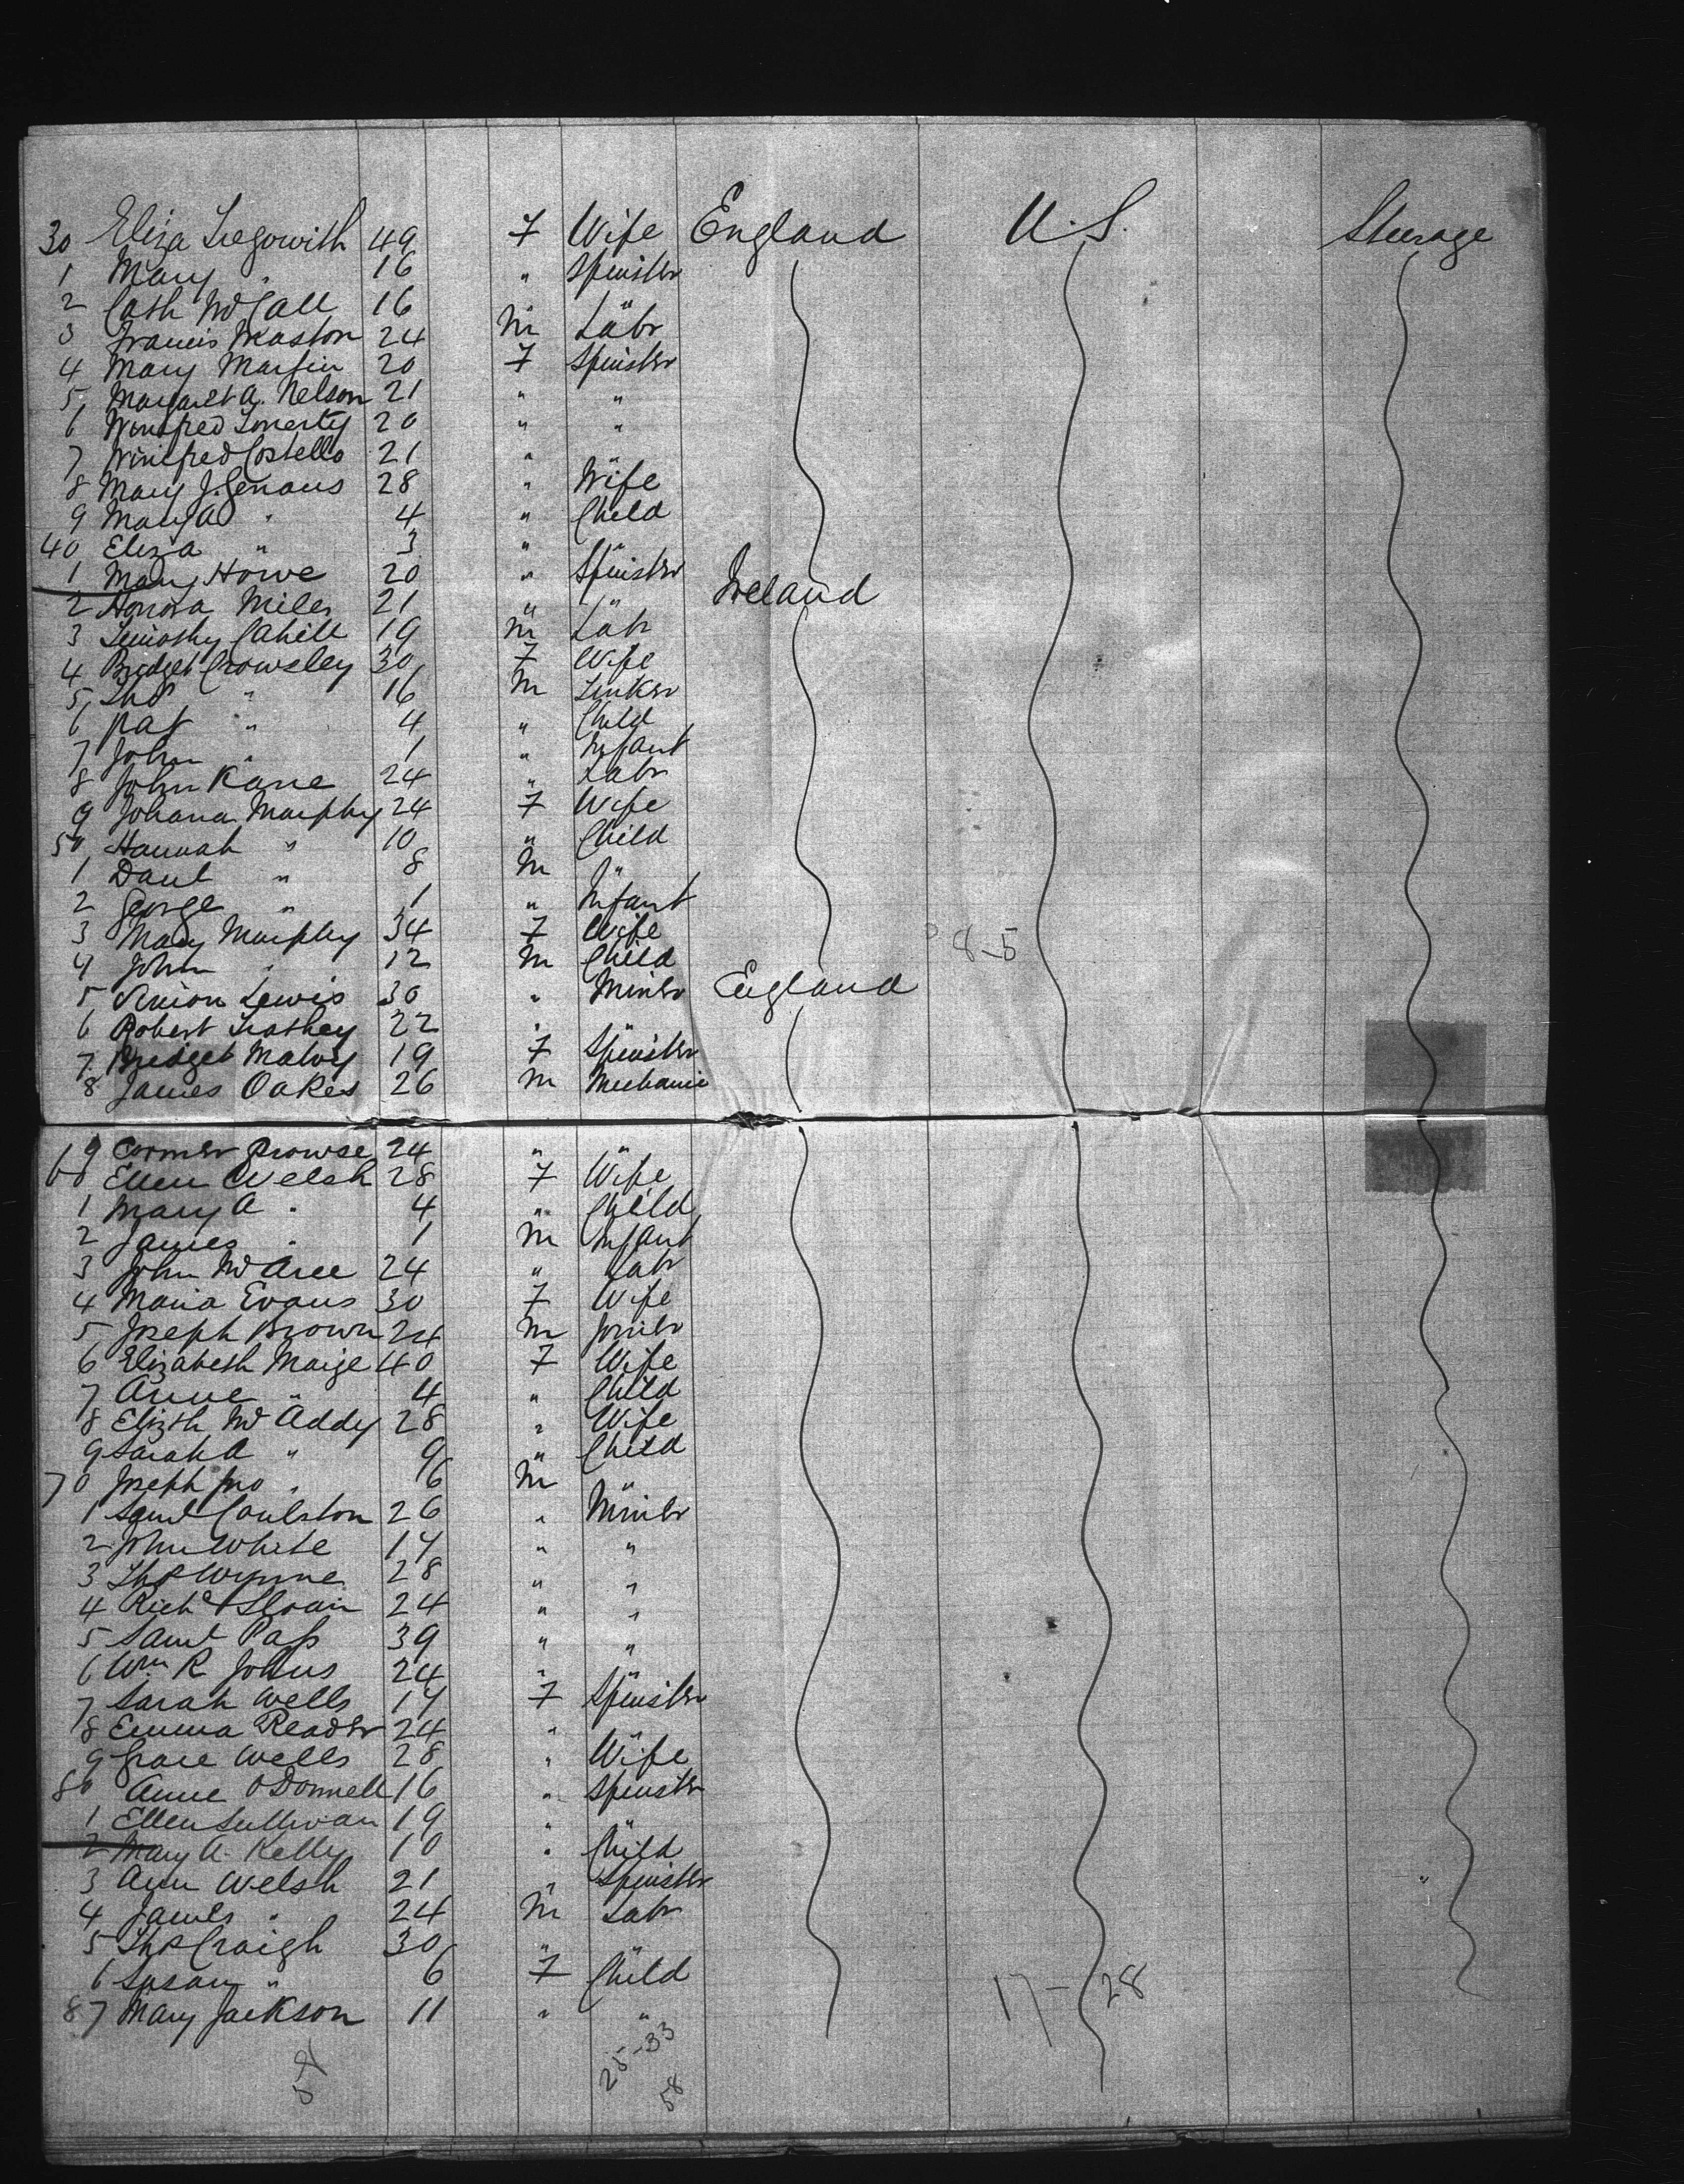 30 Eliza Tregowith 49 F Wife England U.S. Steerage
1 Mary " 16 " Spinster
2 Cath McCall 16 " "
3 Francis Weaston 24 M Labr
4 Mary Martin 20 F Spinster
5 Margaret A. Nelson 21 " "
6 Winifred 20 " "
7 Winifred Costello 21 " "
8 Mary J. 28 " Wife
9 Mary A " 4 " Child
40 Eliza " 3 " "
1 Mary Howe 20 " Spinster Ireland
2 Honora Miles 21 " "
3 Timothy Cahill 19 M Labr
4 Bridget Crowsley 30 F Wife
5 Thos " 16 M Tinker
6 Pat " 4 " Child
7 John " 1 " Infant
8 John Kane 24 " Labr
9 Johana Murphy 24 F Wife
50 Hannah " 10 " Child
1 Danl " 8 M "
2 George " 1 " Infant
3 Mary Murphy 34 F Wife 8-5
4 John " 12 M Child
5 Simon Lewis 30 " Miner England
6 Robert Trathey 22 " "
7 Bridget Malvey 19 F Spinster
8 James Oakes 26 M Mechanic
9 Prowse 24 " "
60 Ellen Welsh 28 F Wife
1 Mary A " 4 " Child
2 James " 1 M Infant
3 John McAree 24 " Labr
4 Maria Evans 30 F Wife
5 Joseph Brown 24 M Joiner
6 Elizabeth Maize 40 F Wife
7 Anne " 4 " Child
8 Elizth McAddy 28 " Wife
9 Sarah A " 9 " Child
70 Joseph Jno " 6 M "
1 Saml Coulston 26 " Miner
2 John White 17 " "
3 Thos Wynne 28 " "
4 Richd Sloain 24 " "
5 Saml Pass 39 " "
6 Wm R Johns 24 " "
7 Sarah Wells 17 F Spinster
8 Emma Reader 24 " "
9 Grace Wells 28 " Wife
80 Anne O'Donnell 16 " Spinster
1 Ellen Sullivan 19 " "
2 Mary A. Kelly 10 " Child
3 Ann Welsh 21 " Spinster
4 James " 24 M Labr
5 Thos Craigh 30 " "
6 Susan " 6 F Child
87 Mary Jackson 11 " " 17-28
25-33
58 58